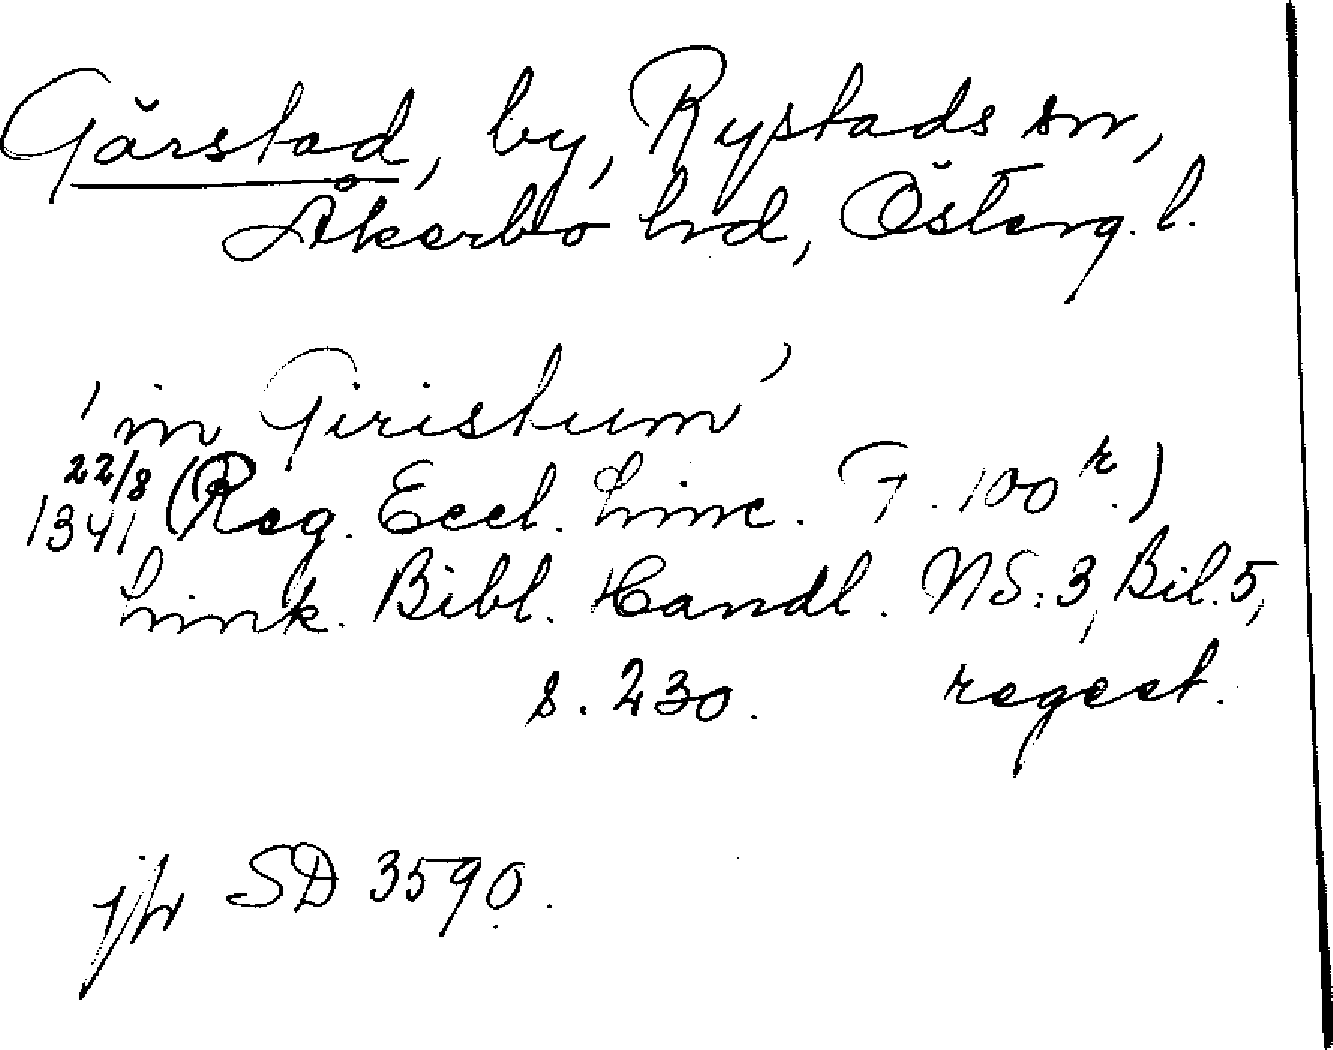 Gärstad, by, Rystads sn,
Åkerbo hd, Österg. l.
'in Giristum'
22/8
1341 (Reg. Eccl. Linc. F. 100 r.)
Link. Bibl. Handl. NS:3, Bil. 5,
s. 230. regest.
jfr SD 3590.